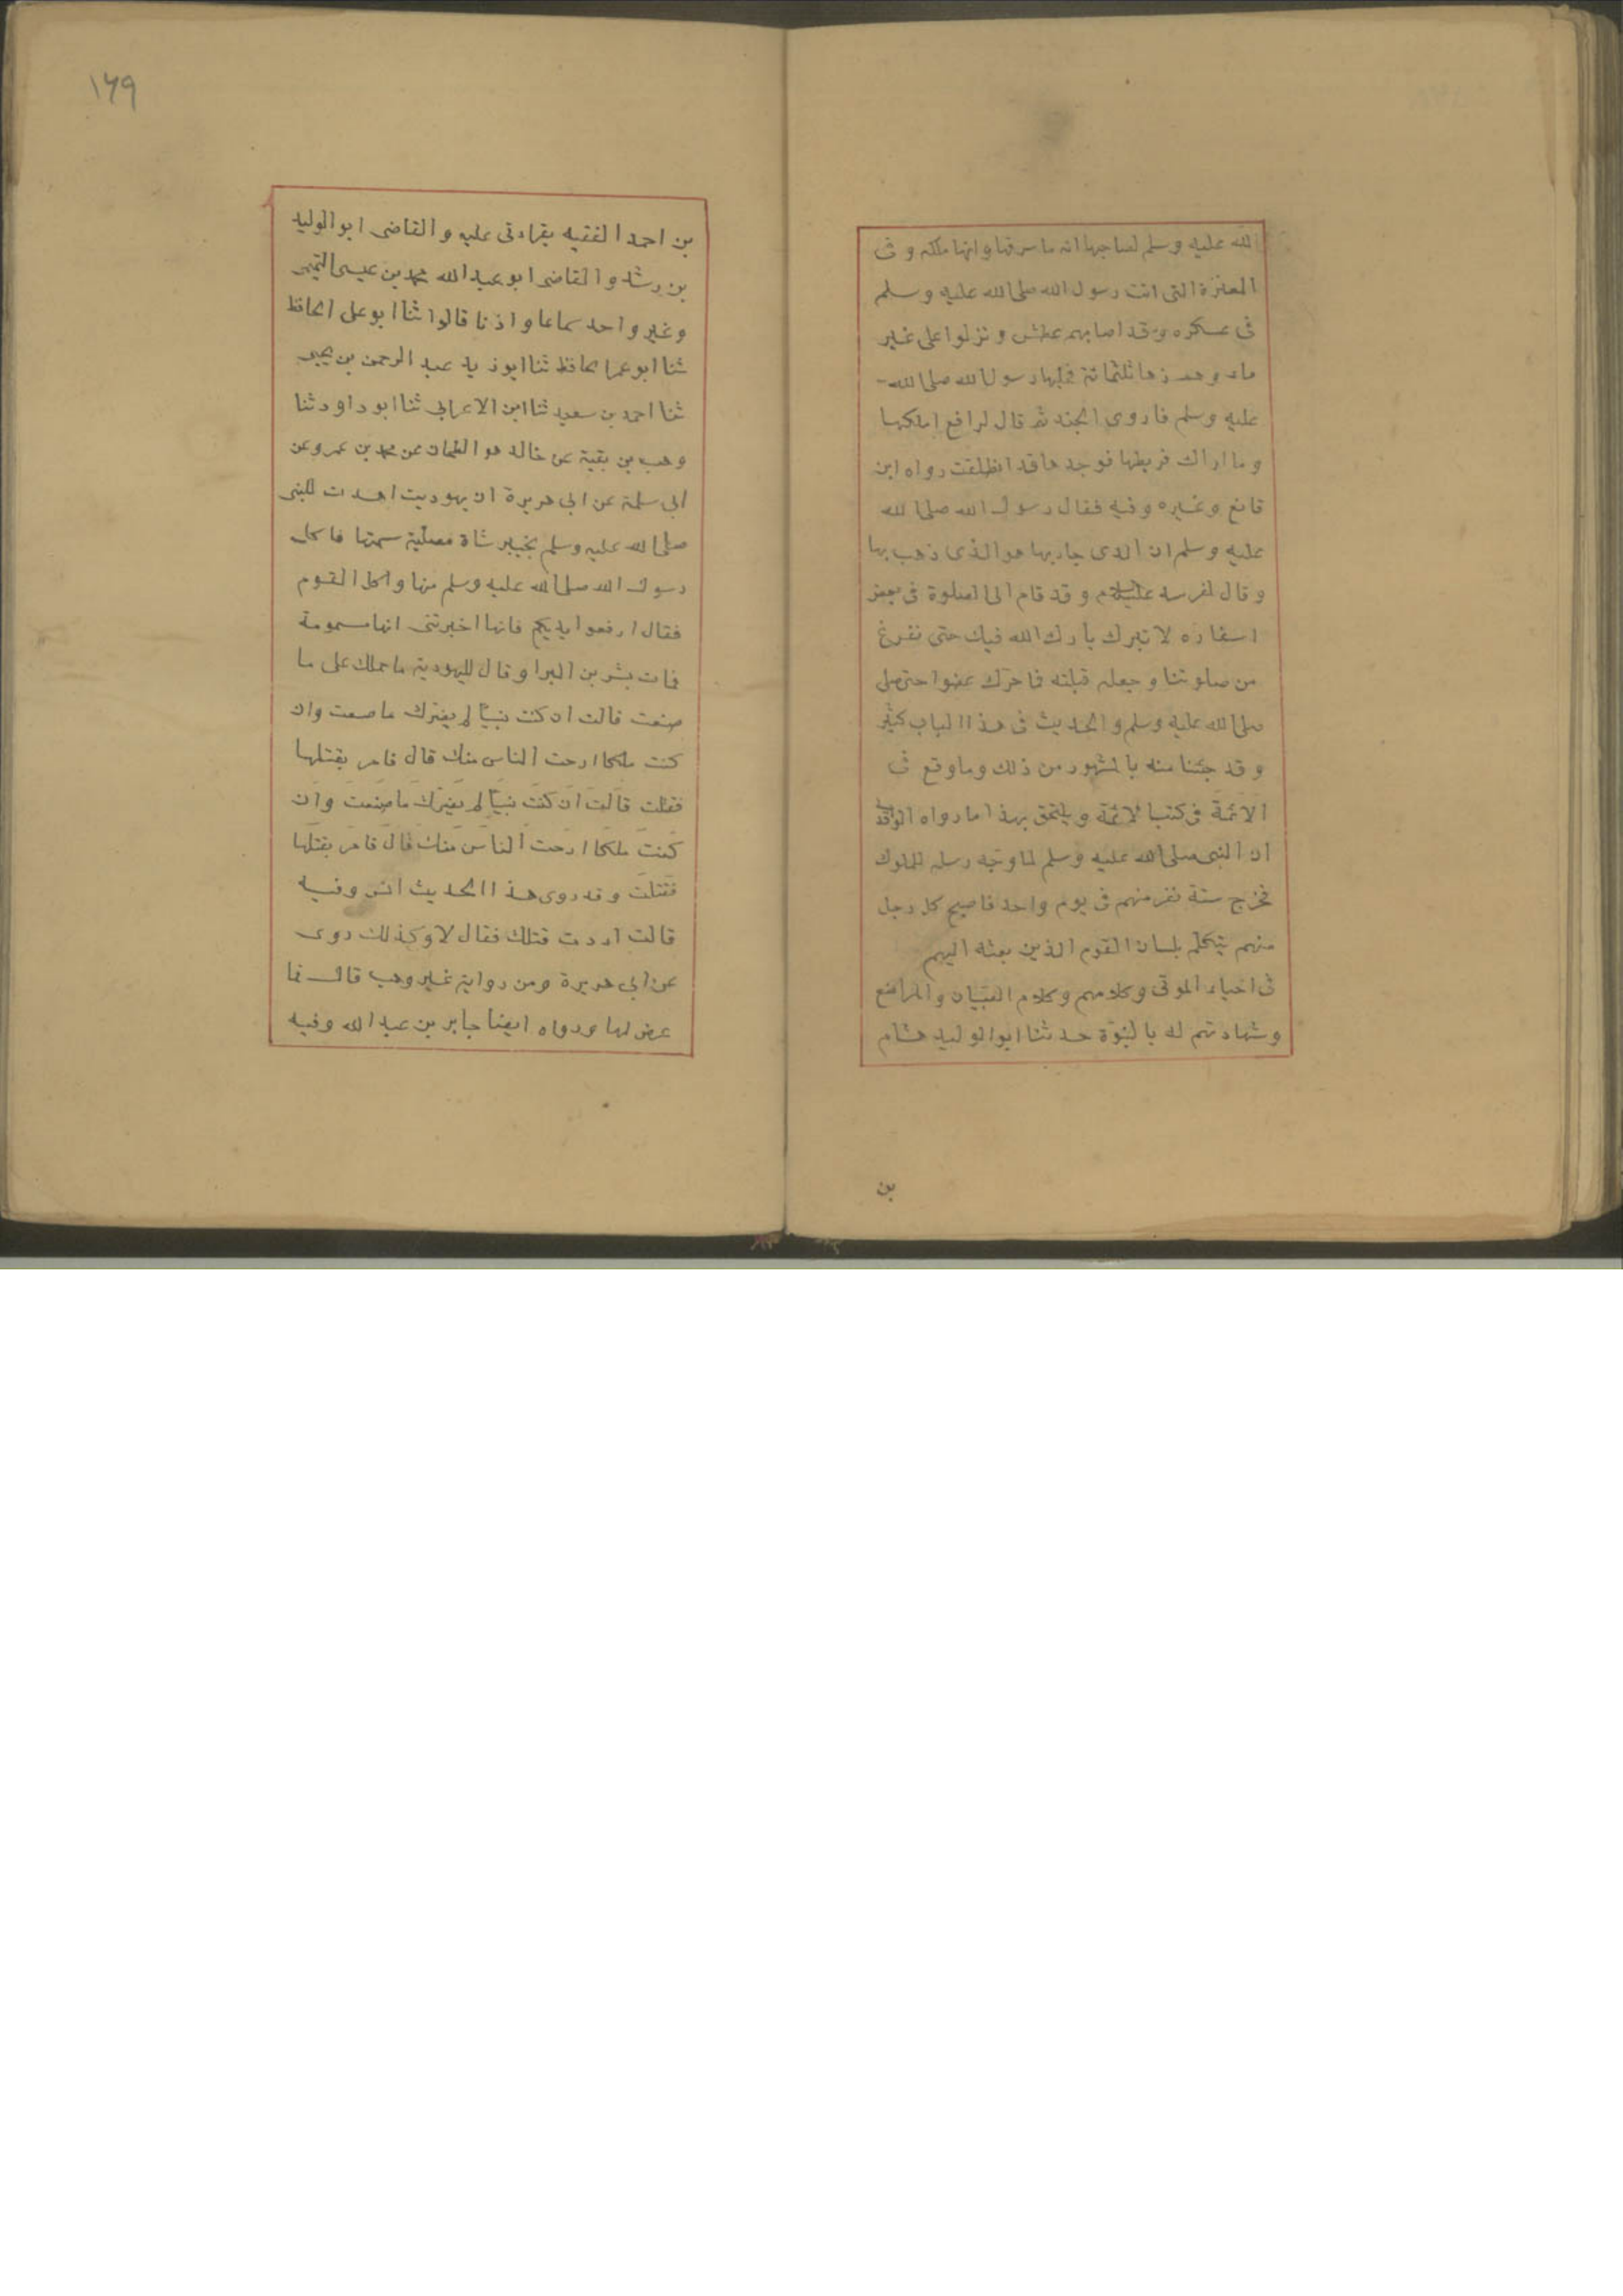 الله عليه وسلم لصاحبها انه ما سرقها وانها ملكه وفى
العنزة التى اتت رسول الله صلى الله عليه وسلم
فى عسكره وقد اصابهم عطش ونزلوا على غير
ماء وهم زهاثلثمائة فحلبها رسول الله صلى الله
عليه وسلم فاروى الجند ثم قال لرافع املكها
وما اراك فربطها فوجدها قد انطلقت رواه ابن
قانع وغيره وفيه فقال رسول الله صلى الله
عليه وسلم ان الذى جاء بها هو الذى ذهب بها
وقال لفرسه عليه السلام وقد قام الى الصلوة فى بعض
اسفاره لا تبرك بارك الله فيك حتى نفرغ
من صلوتنا وجعله قبلته فما حرّك عضوا حتى صلى
صلى الله عليه وسلم والحديث فى هذا الباب كثير
وقد جئنا منه بالمشهور من ذلك وما وقع فى
الائمة فى كتب الائمة ويلتحق بهذا ما رواه الواقدى
ان النبى صلى الله عليه وسلم لما وجّه رسله للملوك
فخرج ستة نفر منهم فى يوم واحد فاصبح كل رجل
منهم يتكلم بلسان القوم الذين بعثه اليهم
فى احياء الموتى وكلامهم وكلام الصّبيان والمراضع
وشهادتهم له بالنبوّة حدثنا ابو الوليد هشام
بن
١٦٩
بن احمد الفقيه بقراءتى عليه والقاضى ابو الوليد
بن رشد والقاضى ابو عبد الله محمد بن عيسى التميمى
وغير واحد سماعا واذنا قالوا ثنا ابو على الحافظ
ثنا ابو عمر الحافظ ثنا ابو زيد عبد الرحمن بن يحيى
ثنا احمد بن سعيد ثنا ابن الاعرابى ثنا ابو داود ثنا
وهب بن بقية عن خالد هو الطحان عن محمد بن عمرو عن
ابى سلمة عن ابى هريرة ان يهوديت اهدت للنبى
صلى الله عليه وسلم بخيبر شاة مصلية سمتها فاكل
رسول الله صلى الله عليه وسلم منها واكل القوم
فقال ارفعوا ايديكم فانها اخبرتنى انها مسمومة
فمات بشر بن البرا وقال لليهودية ما حملك على ما
صنعت قالت ان كنت نبيّا لم يضرك ما صنعت وان
كنت ملكا ارحت الناس منك قال فامر بقتلها
فقتلت قالت ان كنت نبيّا لم يضرّك ما صنعت وان
كنت ملكا ارحت الناس منك قال فامر بقتلها
فقتلت وقد روى هذا الحديث انس وفيه
قالت اردت قتلك فقال لا وكذلك روى
عن ابى هريرة ومن رواية غير وهب قال فما
عرض لها ورواه ايضا جابر بن عبد الله وفيه